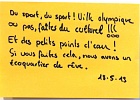 Du sport, du sport ! Ville olympique
ou pas, faites du culturel !!!
Et des petits points d'eau !
Si vous faites cela, nous avons un
écoquartier de rêve.
18-5-13